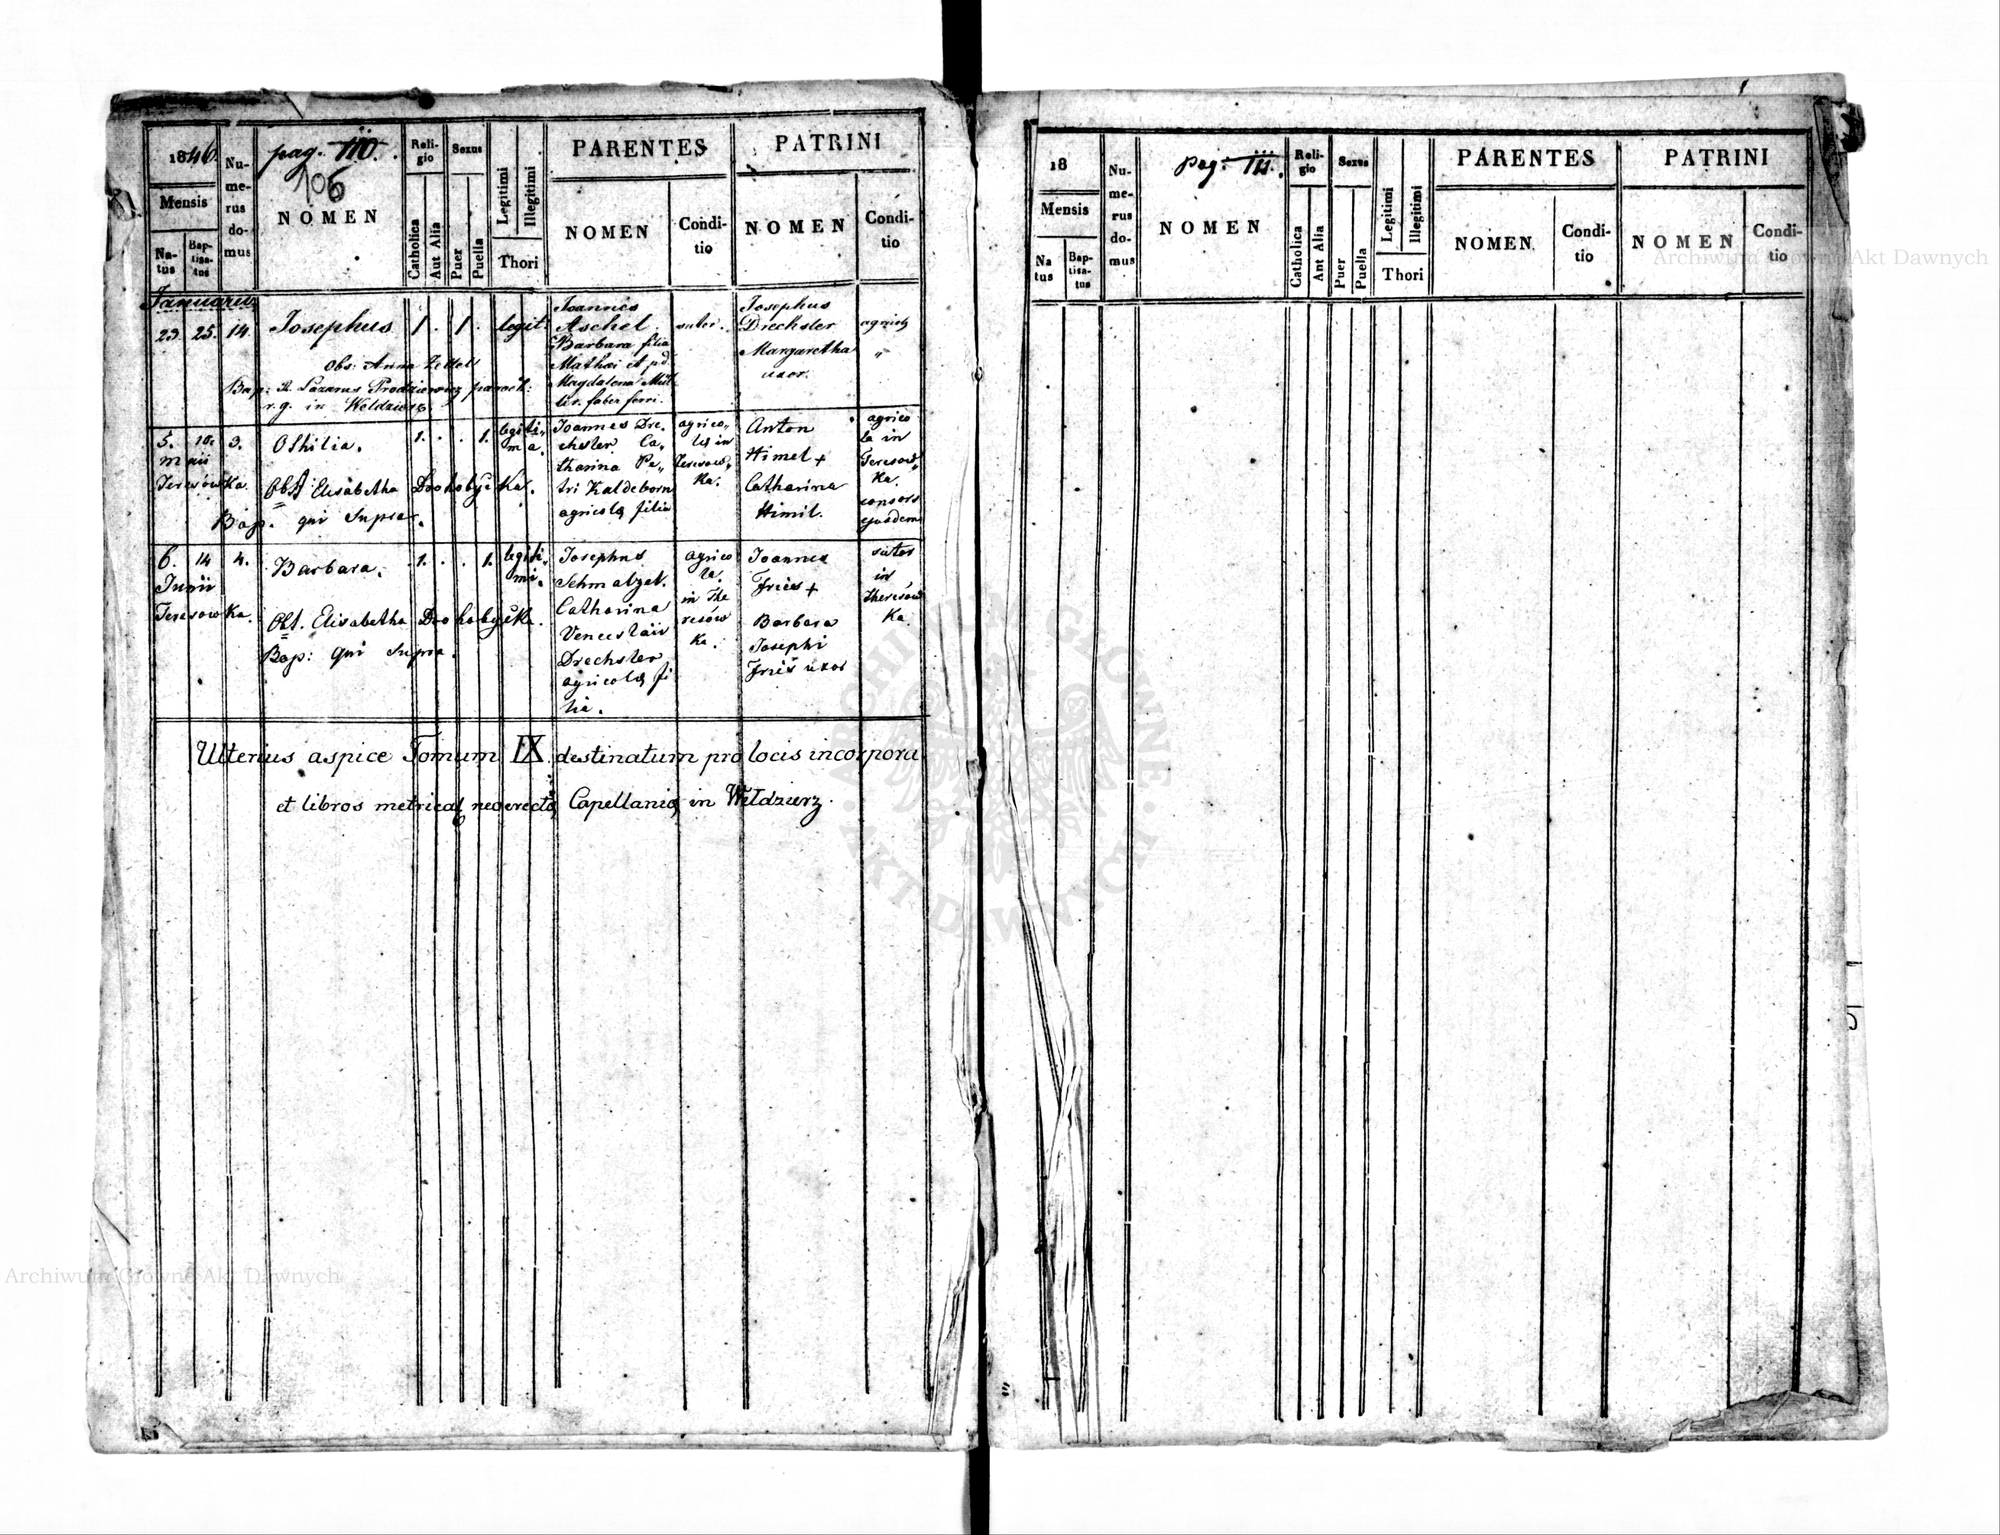 1846.
Mensis
Na-
tus
Bap-
tisa-
tus
Nu-
me-
rus
do-
mus
pag. 110.
106
NOMEN
Reli-
gio
Catholica
Aut Alia
Sexus
Puer
Puella
Legitimi
Illegitimi
Thori
PARENTES
NOMEN
Condi-
tio
PATRINI
NOMEN
Condi-
tio
Januarius
23. 25. 14. Josephus 1. . 1. legit:
Obs: Anna Zettel
Bap: R. Lazarus Prodziewicz paroch:
r. g. in Weldzierz.
Joannes
Aschel.
Barbara filia
Mathæi et
Magdalena Mül
ler. faber ferri.
sutor.
Josephus
Drechsler
Margaretha
uxor.
agricola
"
5. 10. 3. Othilia. 1. . . 1. legiti„
maii ma.
Teresowka. Obst Elisabetha Drohobyčka.
Bap. qui Supra.
Joannes Dre„
chsler Ca„
tharina Pe„
tri Kaldeborn
agricolæ filia
agrico„
la in
Teresow„
ka.
Anton
Himel +
Catharina
Himil.
agrico
la in
Teresow„
ka.
consors
ejusdem
6. 14 4. Barbara. 1. . . 1. legiti„
Junii mi.
Teresowka. Obt. Elisabetha Drohobyčka.
Bap: qui Supra.
Josephus
Schmalzel.
Catharina
Venceslai
Drechsler
agricolæ fi
lia.
agrico
la.
in The
resow
ka.
Joannes
Fries +
Barbara
Josephi
Fries uxor
sutor
in
Theresow
ka.
Ulterius aspice Tomum IX destinatum pro locis incorpora
et libros metricæs neoerectæ Capellaniæ in Weldzierz.
18
Mensis
Na
tus
Bap-
tisa-
tus
Nu-
me-
rus
do-
mus
pag: 111.
NOMEN
Reli-
gio
Catholica
Ant Alia
Sexus
Puer
Puella
Legitimi
Illegitimi
Thori
PARENTES
NOMEN
Condi-
tio
PATRINI
NOMEN
Condi-
tio
Archiwum Główne Akt Dawnych
ARCHIWUM GŁÓWNE
AKT DAWNYCH
Archiwum Główne Akt Dawnych